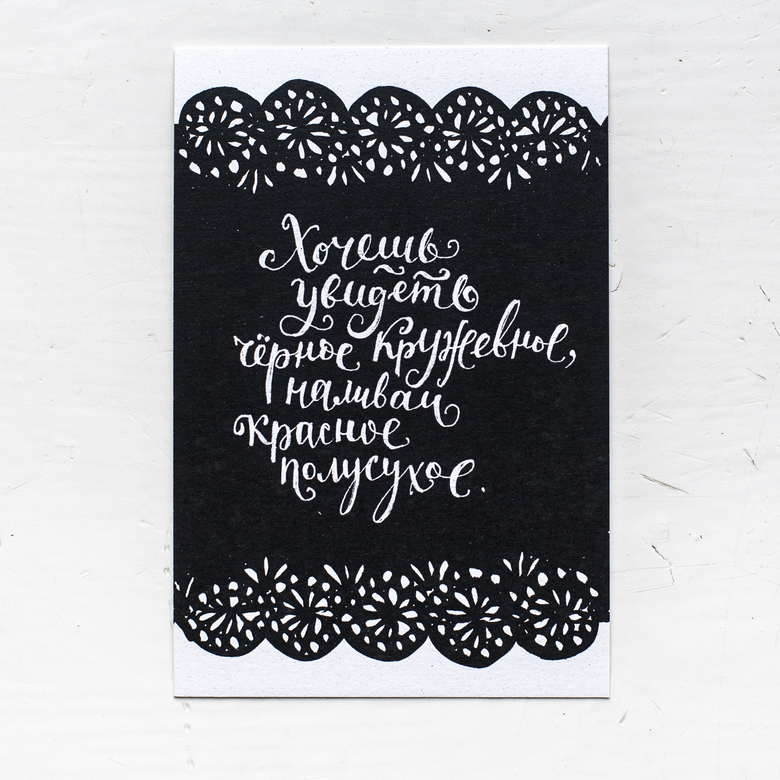 Хочешь
увидеть
чёрное кружевное,
наливай
красное
полусухое.